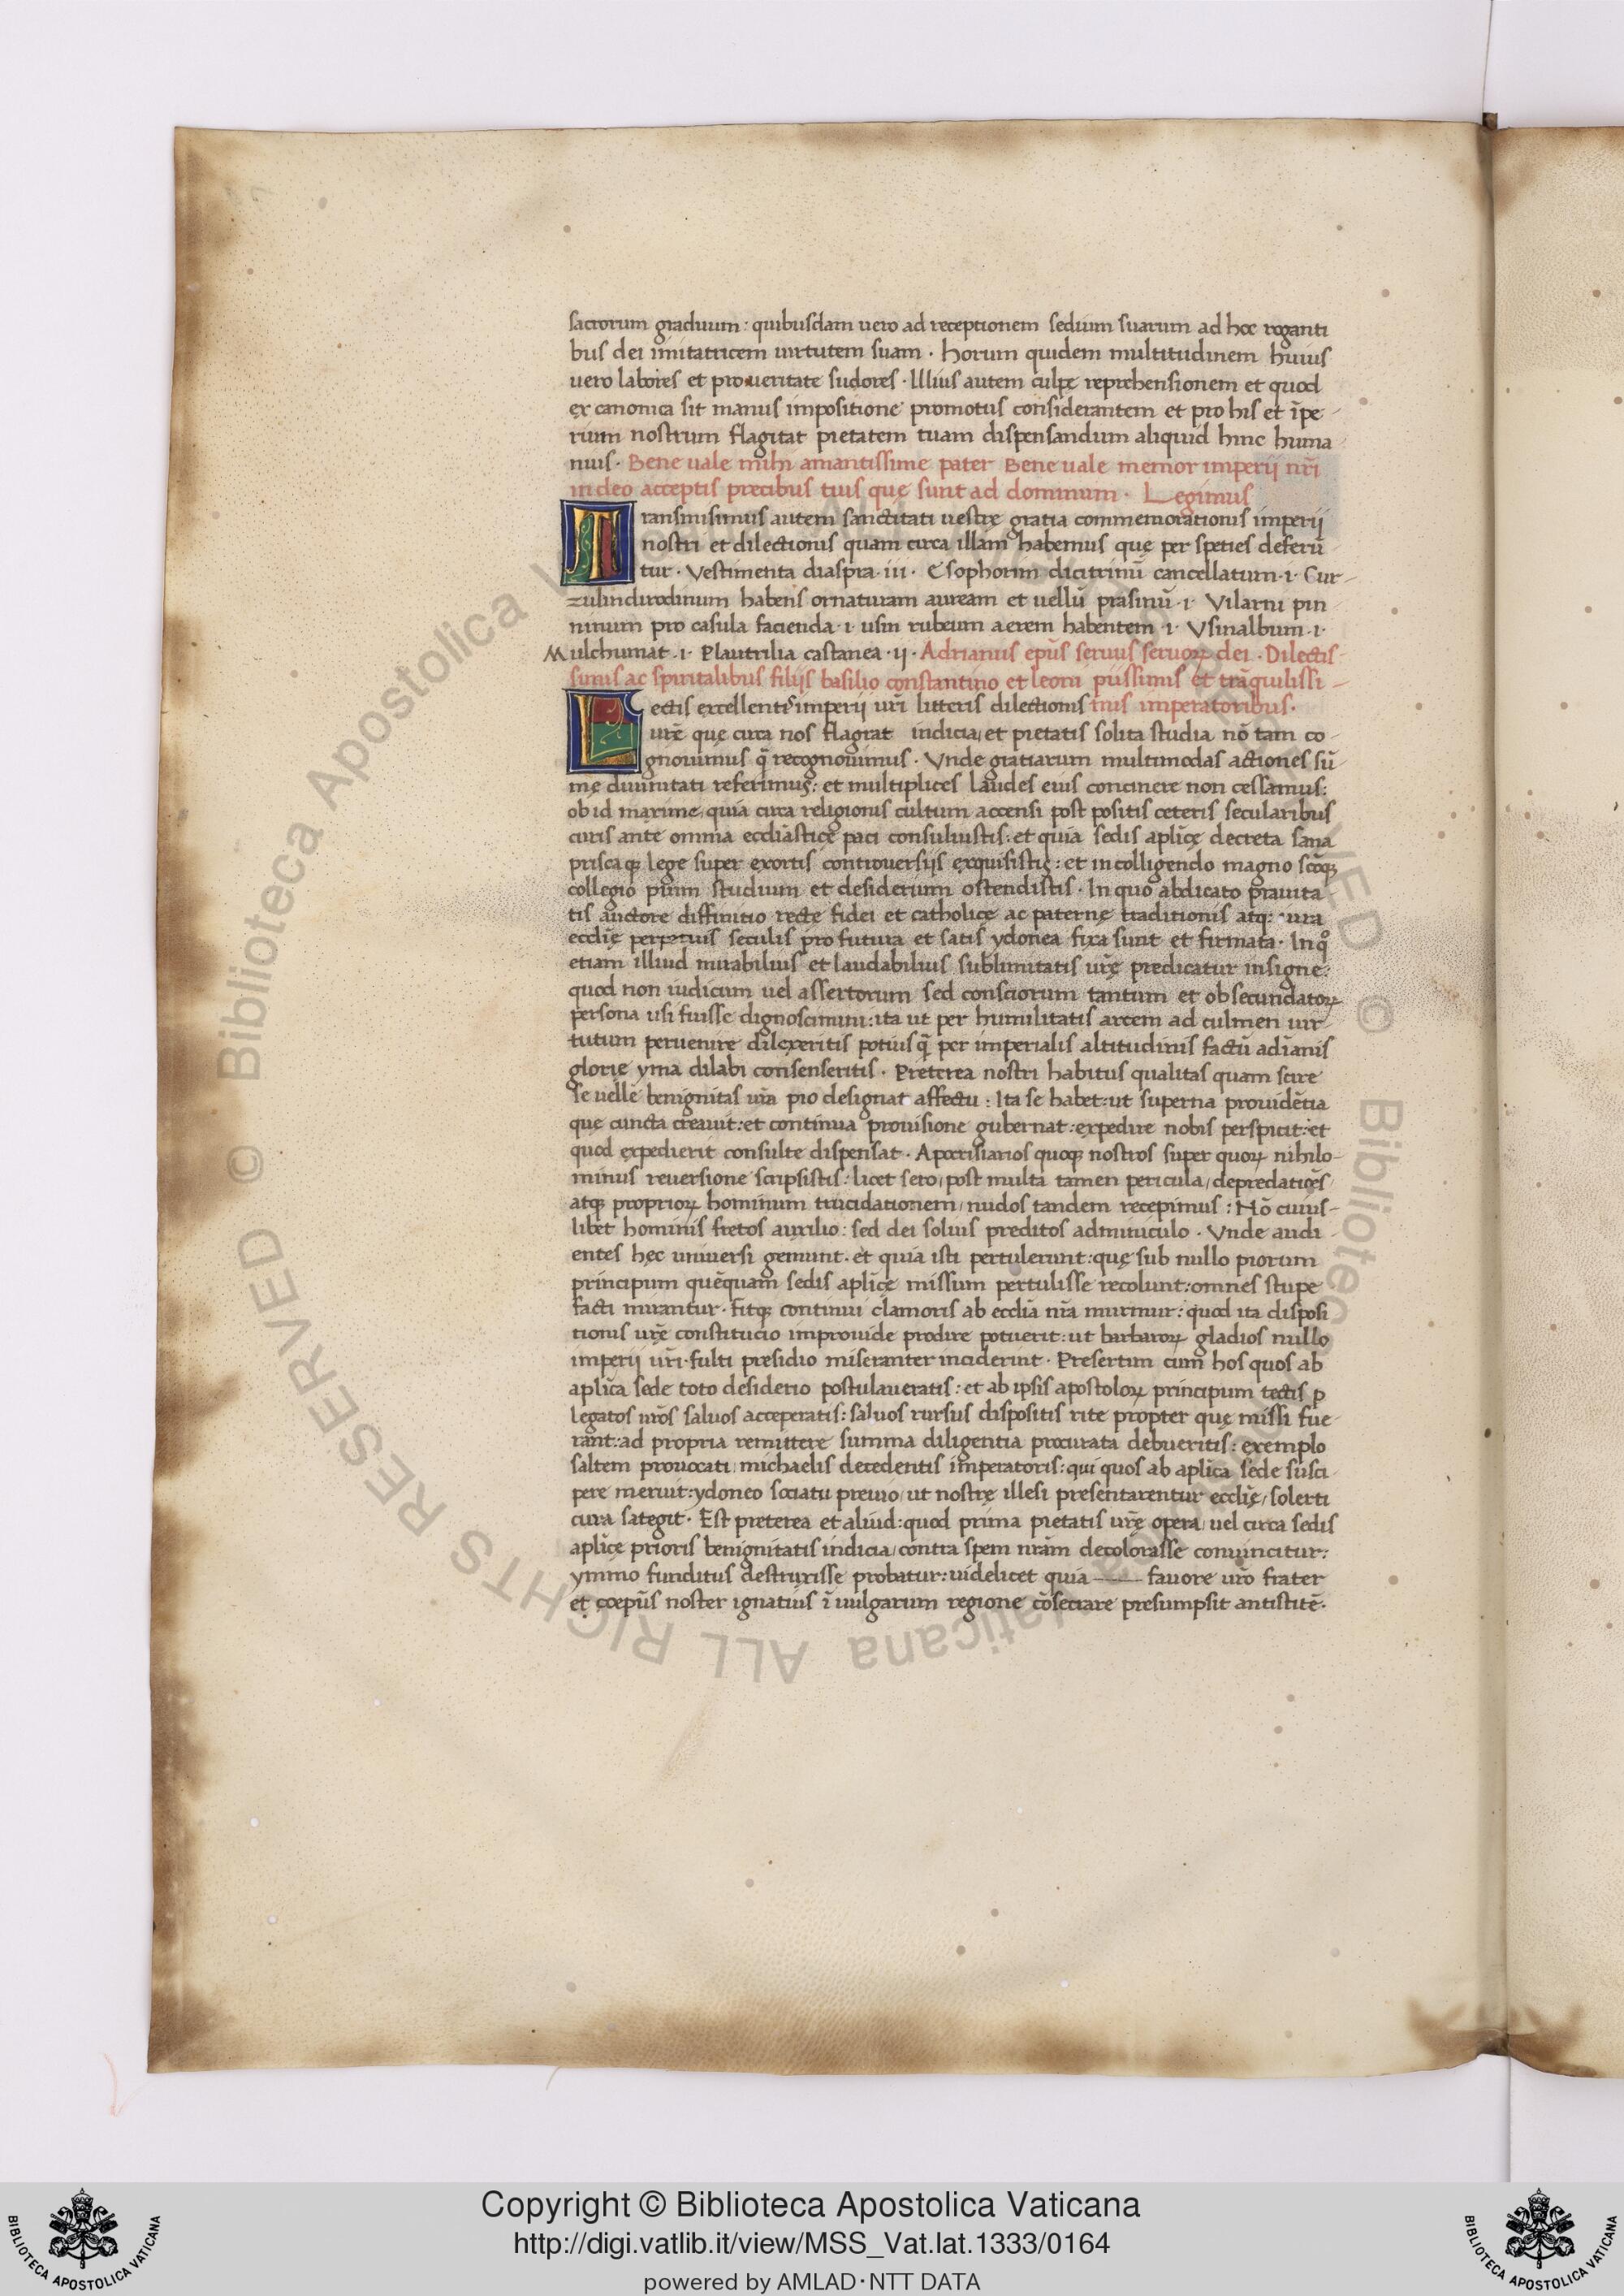 sacrorum graduum: quibusdam uero ad receptionem sedium suarum ad hoc roganti
bus dei imitatricem uirtutem suam. horum quidem multitudinem huius
uero labores et pro ueritate sudores. Illius autem culpę reprehensionem et quod
ex canonica sit manus impositione promotus considerantem et pro his et īpe
rium nostrum flagitat pietatem tuam dispensandum aliquid hinc huma
nius. Bene uale mihi amantissime pater Bene uale memor imperij nr̄i
in deo acceptis precibus tuis quę sunt ad dominum. Legimus
Transmisimus autem sanctitati uestrę gratia commemorationis imperij
nostri et dilectionis quam circa illam habemus quę per species deferū
tur. Vestimenta diaspra .iii. Esophorin dicitrinū cancellatum .i. Cur
zulindirodinum habens ornaturam auream et uellū prasinū .i. Vilarni pin
ninum pro casula facienda .i. usin rubeum aerem habentem .i. Vsinalbum .i.
Mulchumat .i. Plautrilia castanea .ij. Adrianus ep̄us seruus seruoꝝ dei. Dilectis
simis ac spiritalibus filijs basilio constantino et leoni piissimis et trāquilissi
mis imperatoribus.
Lectis excellentis imperij ur̄i litteris dilectionis
ur̄e que circa nos flagrat indicia, et pietatis solita studia nō tam co
gnouimus q̄ recognouimus. Vnde gratiarum multimodas actiones sū
mę diuinitati referimus: et multiplices laudes eius concinere non cessamus:
ob id maxime, quia circa religionis cultum accensi post positis ceteris secularibus
curis ante omnia eccl̄iasticę paci consuluistis: et quia sedis apl̄icę decreta sana
priscaqꝫ lege super exortis controuersijs exquisistis: et in colligendo magno sc̄oqꝫ
collegio pium studium et desiderium ostendistis. In quo abdicato prauita
tis auctore diffinitio rectę fidei et catholicę ac paternę traditionis atqꝫ iura
eccl̄ię perpetuis seculis pro futura et satis ydonea fixa sunt et firmata. In qͦ
etiam illud mirabilius et laudabilius sublimitatis ur̄ę predicatur insigne:
quod non iudicum uel assertorum sed consciorum tantum et obsecundatoꝝ
persona usi fuisse dignoscimini: ita ut per humilitatis arcem ad culmen uir
tutum peruenire dilexeritis potius q̄ per imperialis altitudinis factū ad īanis
glorię yma dilabi consenseritis. Preterea nostri habitus qualitas quam scire
se uelle benignitas ur̄a pio designat affectu: Ita se habet: ut superna prouidētia
que cuncta creauit: et continua prouisione gubernat: expedire nobis perspicit: et
quod expedierit consulte dispensat. Apocrisiarios quoqꝫ nostros super quoꝝ nihilo
minus reuersione scripsistis: licet sero, post multa tamen pericula, depredatiōes
atqꝫ proprioꝝ hominum trucidationem, nudos tandem recepimus: Nō cuius
libet hominis fretos auxilio: sed dei solius preditos adminiculo. Vnde audi
entes hęc uniuersi gemunt. et quia isti pertulerunt: quę sub nullo piorum
principum quēquam sedis apl̄icę missum pertulisse recolunt: omnes stupe
facti mirantur. fitqꝫ continui clamoris ab eccl̄ia nr̄a murmur: quod ita disposi
tionis ur̄ę constitucio improuide prodire potuerit: ut barbaroꝝ gladios nullo
imperij ur̄i fulti presidio miseranter inciderint. Presertim cum hos quos ab
apl̄ica sede toto desiderio postulaueratis: et ab ipsis apostoloꝝ principum tectis ꝑ
legatos ur̄os saluos acceperatis: saluos rursus dispositis rite propter quę missi fue
rant: ad propria remittere summa diligentia procurata debueritis: exemplo
saltem prouocati, michaelis decedentis imperatoris: qui quos ab apl̄ica sede susci
pere meruit: ydoneo sociatu preuio, ut nostrę illesi presentarentur eccl̄ię, solerti
cura sategit. Est preterea et aliud: quod prima pietatis ur̄ę opera, uel circa sedis
apl̄icę prioris benignitatis indicia, contra spem nr̄am decolorasse conuincitur:
ymmo funditus destruxisse probatur: uidelicet quia —— fauore ur̄o frater
et coep̄us noster ignatius ī uulgarum regione cōsecrare presumpsit antistitē.
Copyright © Biblioteca Apostolica Vaticana
http://digi.vatlib.it/view/MSS_Vat.lat.1333/0164
powered by AMLAD·NTT DATA
BIBLIOTECA APOSTOLICA VATICANA
BIBLIOTECA APOSTOLICA VATICANA
© Biblioteca Apostolica Vaticana ALL RIGHTS RESERVED